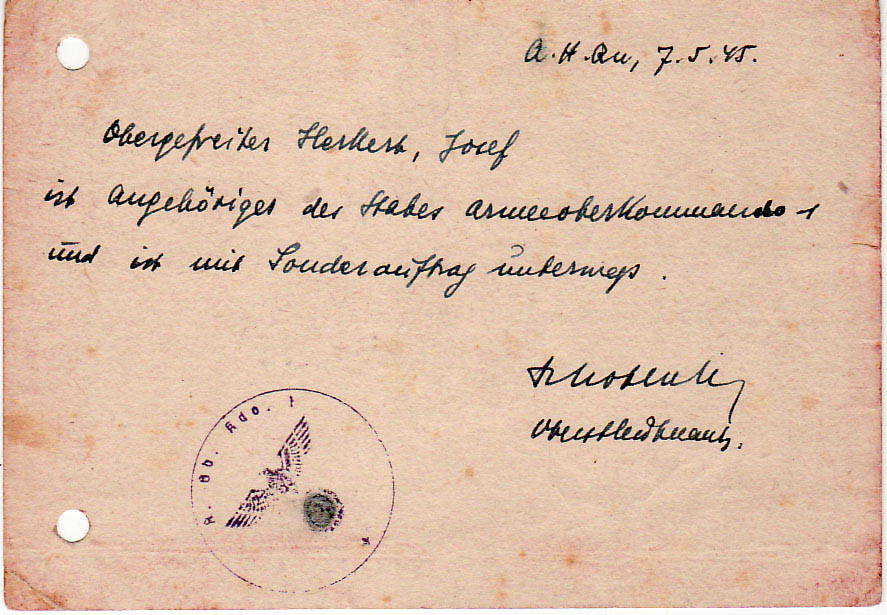 A.H.Qu, 7.5.45.
Obergefreiter Herkert, Josef
ist Angehöriger des Stabes Armeeoberkommando 1
und ist mit Sonderauftrag unterwegs.
Oberstleutnant.
A. Ob. Kdo. 1